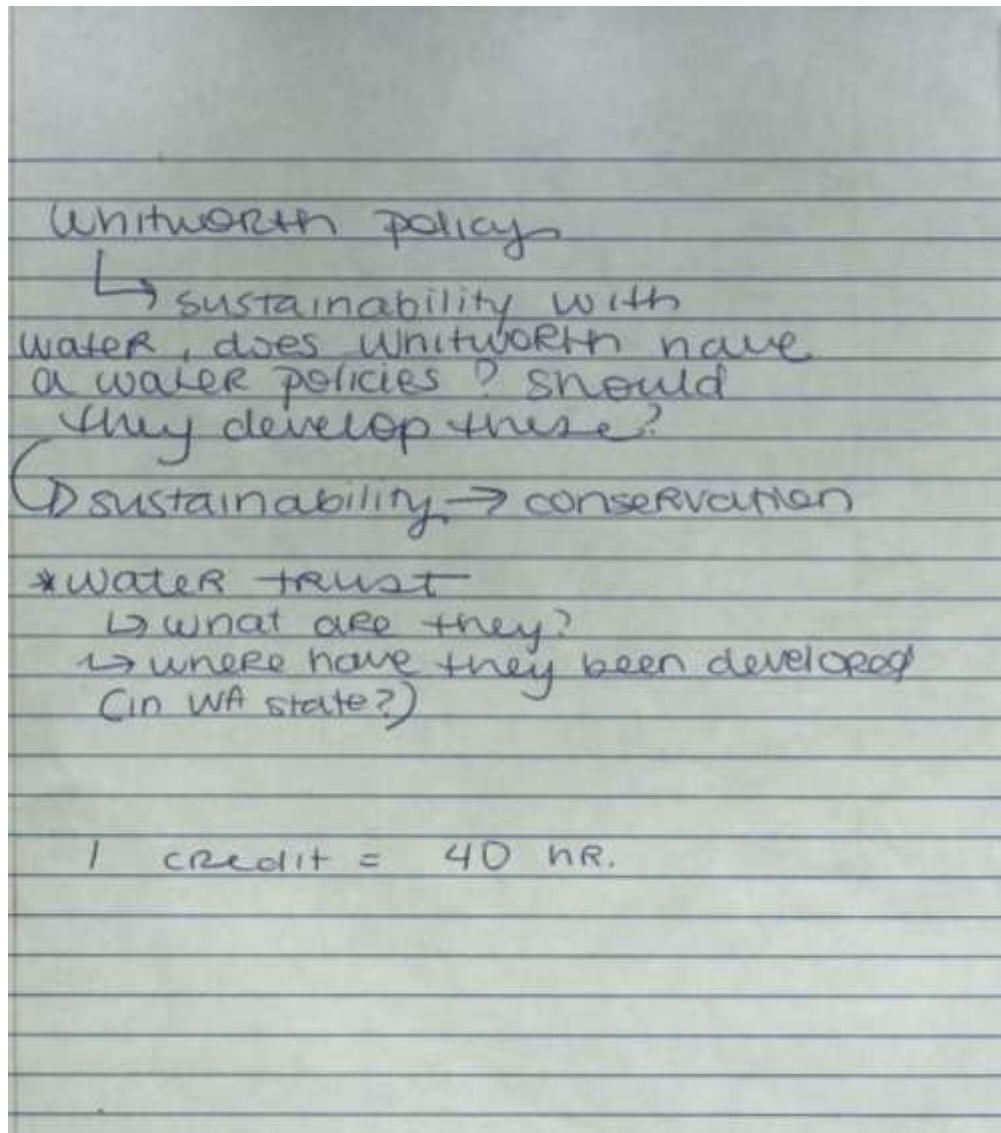 Whitworth policy
↳ sustainability with
water, does Whitworth have
a water policies? should
they develop these?
↳ sustainability → conservation
* water trust
↳ what are they?
↳ where have they been developed
(in WA state?)
1 credit = 40 hR.